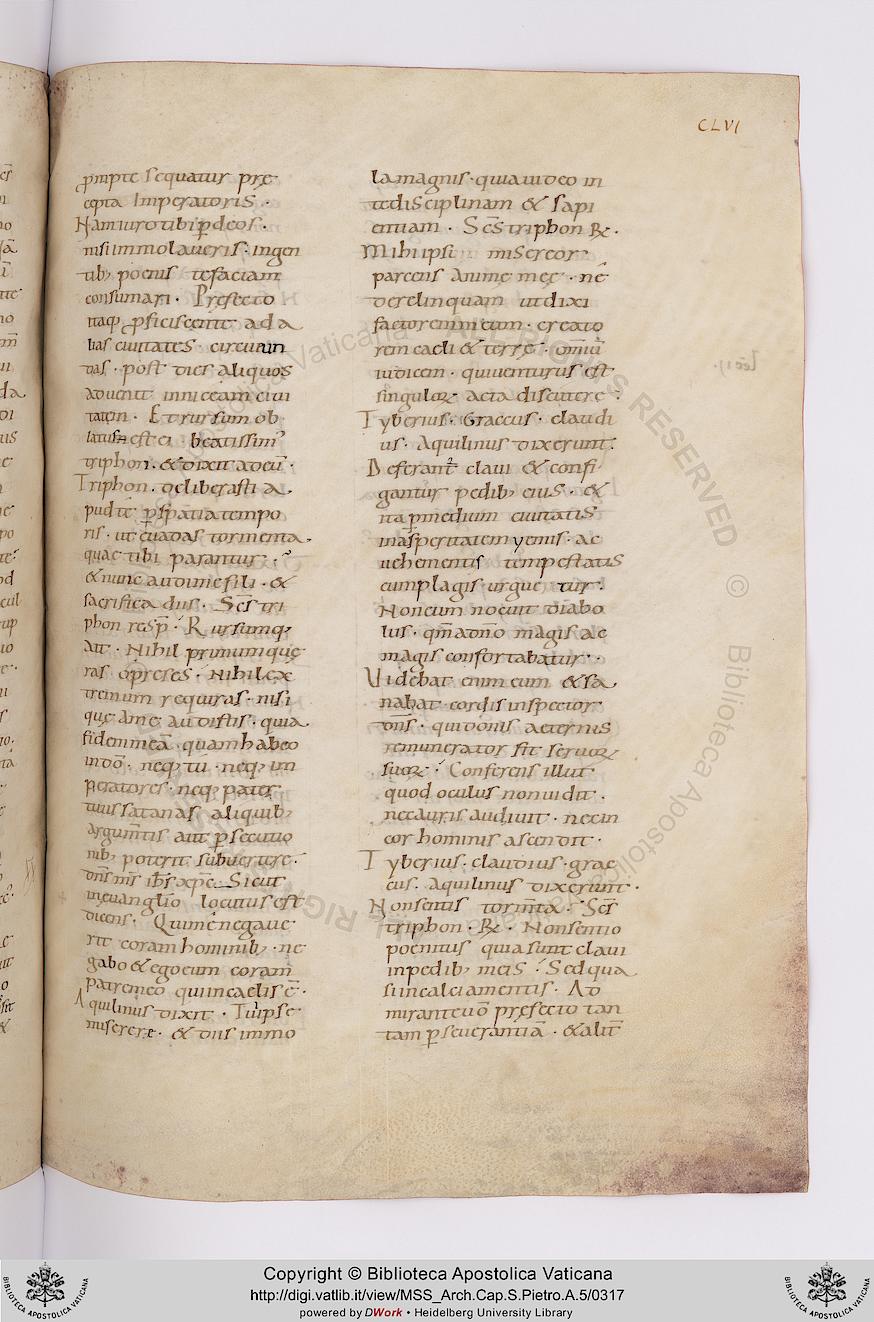 CLVI
p̄mpte sequatur pre
cepta Imperatoris ·
Nam iuro tibi p̱ deos ·
nisi immolaueris · ingen
tib; poenis te faciam
consumari · Prefecto
itaq; p̱ficiscente ad a
lias ciuitates · circum
uas · post dies aliquos
aduenit inniceam ciui
tatem · Et rursum ob
latus est ei beatissim᾽
triphon · & dixit ad eū ·
Triphon · deliberasti a
pud te p̱ spatia tempo
ris · ut euadas tormenta ·
quae tibi parantur ·
& nunc audi me fili · &
sacrifica diis · Scs̄ tri
phon resp̄ · Rursumq;
ait · Nihil primum que
ras o preses · Nihil ex
tremum requiras · nisi
que a me audistis · quia
fidem meā · quam habeo
in dō · neq; tū · neq; im
peratores · neq; pater
tuus satanas aliquib;
argum̄tis aut p̱secutio
nib; poterit subuertere ·
dn̄s nr̄s ih̄s xp̄c · Sicut
in euanglio locutus est
dicens · Qui me negaue
rit coram hominib; · ne
gabo & ego eum coram
patre meo qui in caelis ē ·
Aquilinus dixit · Tu ipse
miserere · & diis immo
la magnis · quia uideo in
te disciplinam & sapi
entiam · Scs̄ triphon R̸ ·
Mihi ipsi misereor
parcens anime mee · ne
derelinquam ut dixi
factorem meum · creato
rem caeli & terre · omiū
iudicem · qui uenturus est
singulor̸ acta discutere ·
Tyberius · Graccus · claudi
us · Aquilinus dixerunt ·
Deferant᾽ claui & confi
gantur pedib; eius · &
ita p̱ medium ciuitatis
in asperitatem yemis · ac
uehementis tempestatis
cum plagis urgue tur ·
Non eum nocuit diabo
lus · qm̄ ad n̄o magis ac
magis confortabatur ·
Videbat enim eum & sa
nabat cordis inspector
dn̄s · qui donis aeternis
remunerator sit seruor̸
suor̸ · Conferens illut
quod oculus non uidit ·
nec auris audiuit · nec in
cor hominis ascendit ·
Tyberius · claudius · grac
cus · Aquilinus dixerunt ·
Non sentis torm̄ta · Scs̄
triphon · R̸ · Non sentio
poenitus quia sunt claui
in pedib; meis · Sed qua
si in calciamentis · Ad
mirante uō prefecto tan
tam p̱seuerantiā · & alit̄
Copyright © Biblioteca Apostolica Vaticana
http://digi.vatlib.it/view/MSS_Arch.Cap.S.Pietro.A.5/0317
powered by DWork • Heidelberg University Library